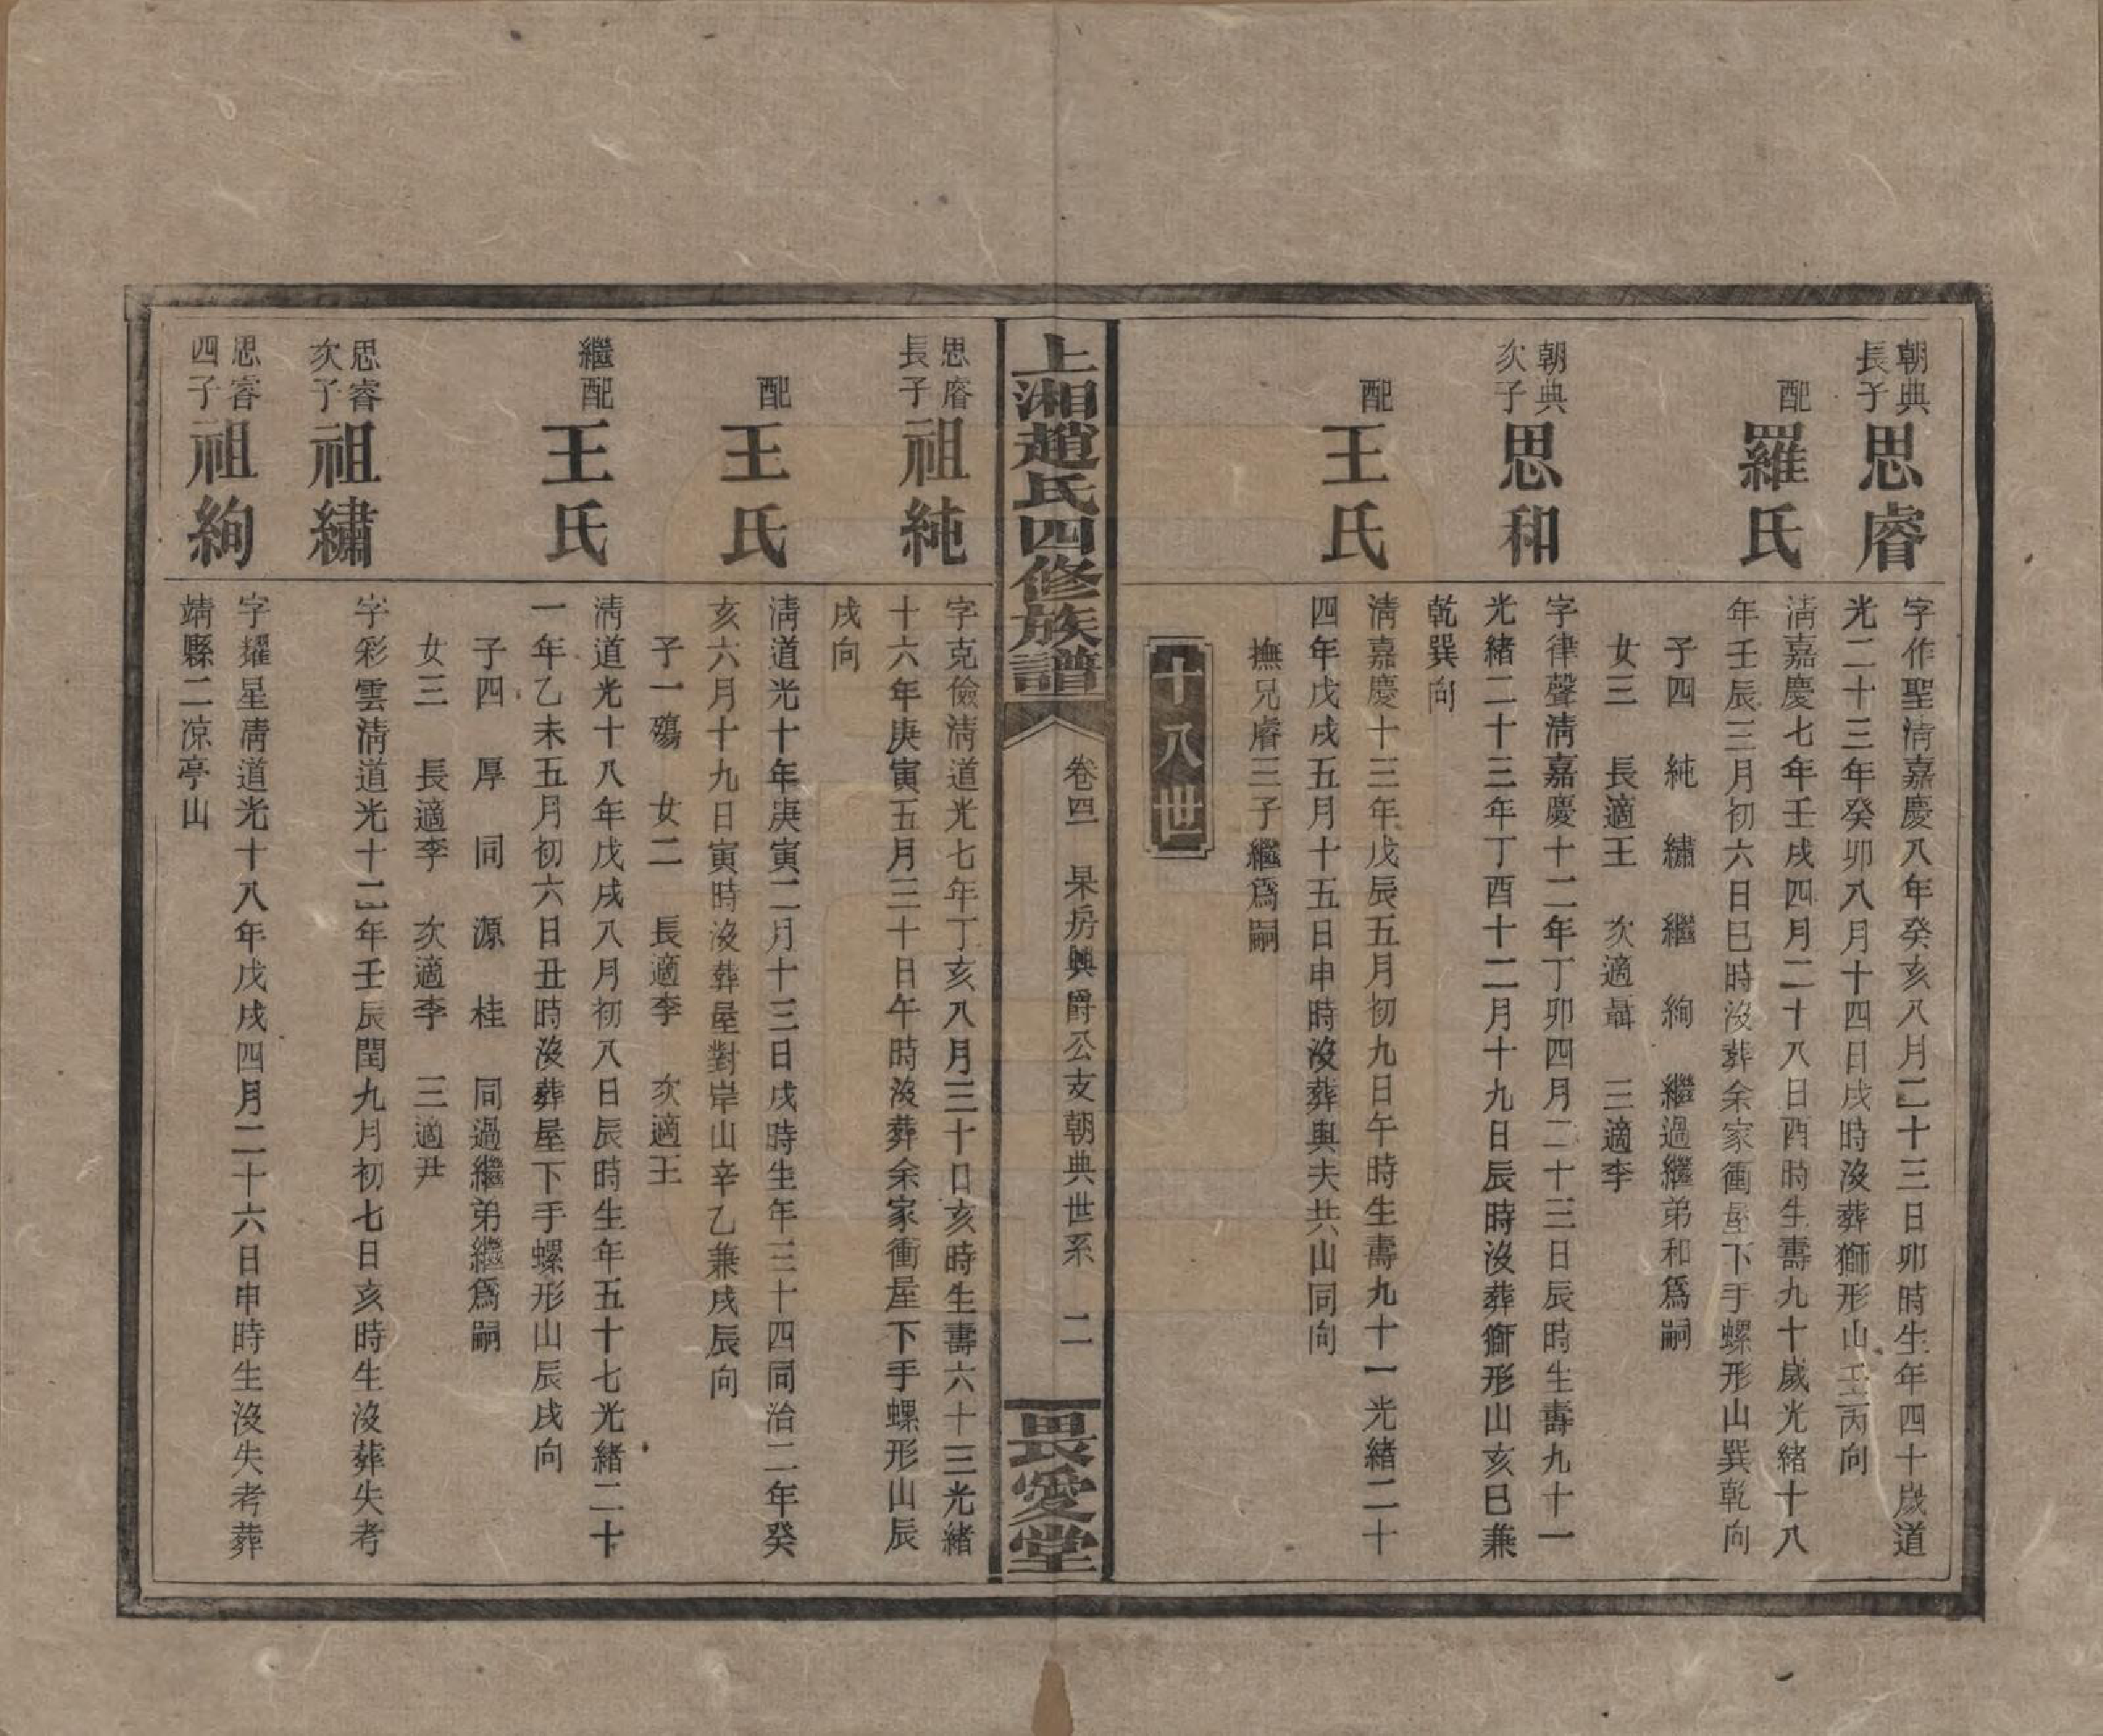 朝典長子
思睿
字作聖淸嘉慶八年癸亥八月二十三日卯時生年四十歲道
光二十三年癸卯八月十四日戌時沒葬獅形山壬丙向
配
羅氏
淸嘉慶七年壬戌四月二十八日酉時生壽九十歲光緖十八
年壬辰三月初六日巳時沒葬余家衝屋下手螺形山巽乾向
子四　純　繡　繼　絢　繼過繼弟和爲嗣
女三　長適王　次適聶　三適李
朝典次子
思和
字律聲淸嘉慶十二年丁卯四月二十三日辰時生壽九十一
光緖二十三年丁酉十二月十九日辰時沒葬獅形山亥巳兼
乾巽向
配
王氏
淸嘉慶十三年戊辰五月初九日午時生壽九十一光緖二十
四年戊戌五月十五日申時沒葬與夫共山同向
撫兄睿三子繼爲嗣
十八世
上湘趙氏四修族譜
卷四　杲房興爵公支朝典世系　二
畏愛堂
思睿長子
祖純
字克儉淸道光七年丁亥八月三十日亥時生壽六十三光緖
十六年庚寅五月三十日午時沒葬余家衝屋下手螺形山辰
戌向
配
王氏
淸道光十年庚寅二月十三日戌時生年三十四同治二年癸
亥六月十九日寅時沒葬屋對岸山辛乙兼戌辰向
子一殤　女二　長適李　次適王
繼配
王氏
淸道光十八年戊戌八月初八日辰時生年五十七光緖二十
一年乙未五月初六日丑時沒葬屋下手螺形山辰戌向
子四　厚　同　源　桂　同過繼弟繼爲嗣
女三　長適李　次適李　三適尹
思睿次子
祖繡
字彩雲淸道光十二年壬辰閏九月初七日亥時生沒葬失考
思睿四子
祖絢
字耀星淸道光十八年戊戌四月二十六日申時生沒失考葬
靖縣二凉亭山